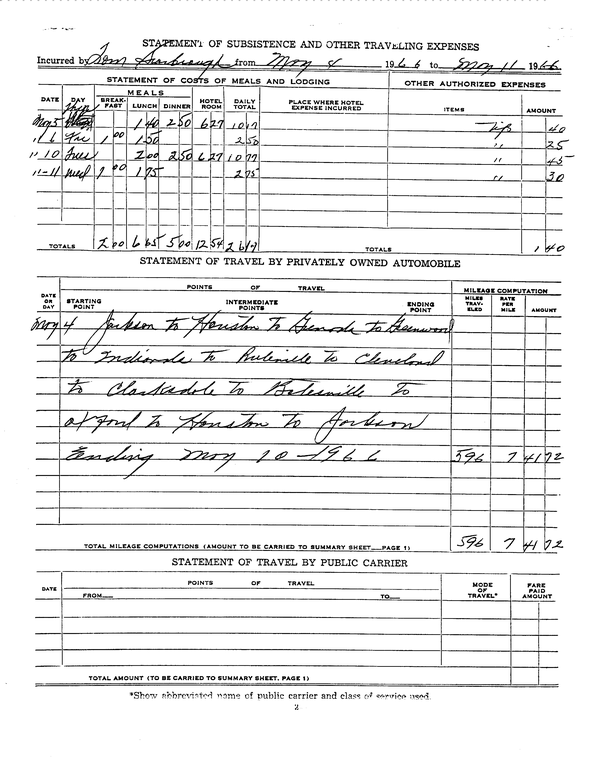 STATEMENT OF SUBSISTENCE AND OTHER TRAVELING EXPENSES
Incurred by Tom Scarbrough from May 4 1966 to May 11 1966
STATEMENT OF COSTS OF MEALS AND LODGING OTHER AUTHORIZED EXPENSES
DATE DAY MEALS BREAKFAST LUNCH DINNER HOTEL ROOM DAILY TOTAL PLACE WHERE HOTEL EXPENSE INCURRED ITEMS AMOUNT
May 5 Thur 1 40 2 50 6 27 10 17 Tips 40
" 6 Fri 1 00 1 50 2 50 " 25
" 10 Tues 2 00 2 50 6 27 10 77 " 45
"-11 Wed 1 00 1 75 2 75 " 30
TOTALS 2 00 6 65 5 00 12 54 26 19 TOTALS 1 40
STATEMENT OF TRAVEL BY PRIVATELY OWNED AUTOMOBILE
DATE OR DAY POINTS OF TRAVEL MILEAGE COMPUTATION
STARTING POINT INTERMEDIATE POINTS ENDING POINT MILES TRAVELED RATE PER MILE AMOUNT
May 4 Jackson to Houston to Grenada to Greenwood
to Indianola to Ruleville to Cleveland
to Clarksdale to Batesville to
Oxford to Houston to Jackson
Ending May 10-1966 596 7 41 72
TOTAL MILEAGE COMPUTATIONS (AMOUNT TO BE CARRIED TO SUMMARY SHEET PAGE 1) 596 7 41 72
STATEMENT OF TRAVEL BY PUBLIC CARRIER
DATE POINTS OF TRAVEL MODE OF TRAVEL* FARE PAID AMOUNT
FROM TO
TOTAL AMOUNT (TO BE CARRIED TO SUMMARY SHEET, PAGE 1)
*Show abbreviated name of public carrier and class of service used.
2